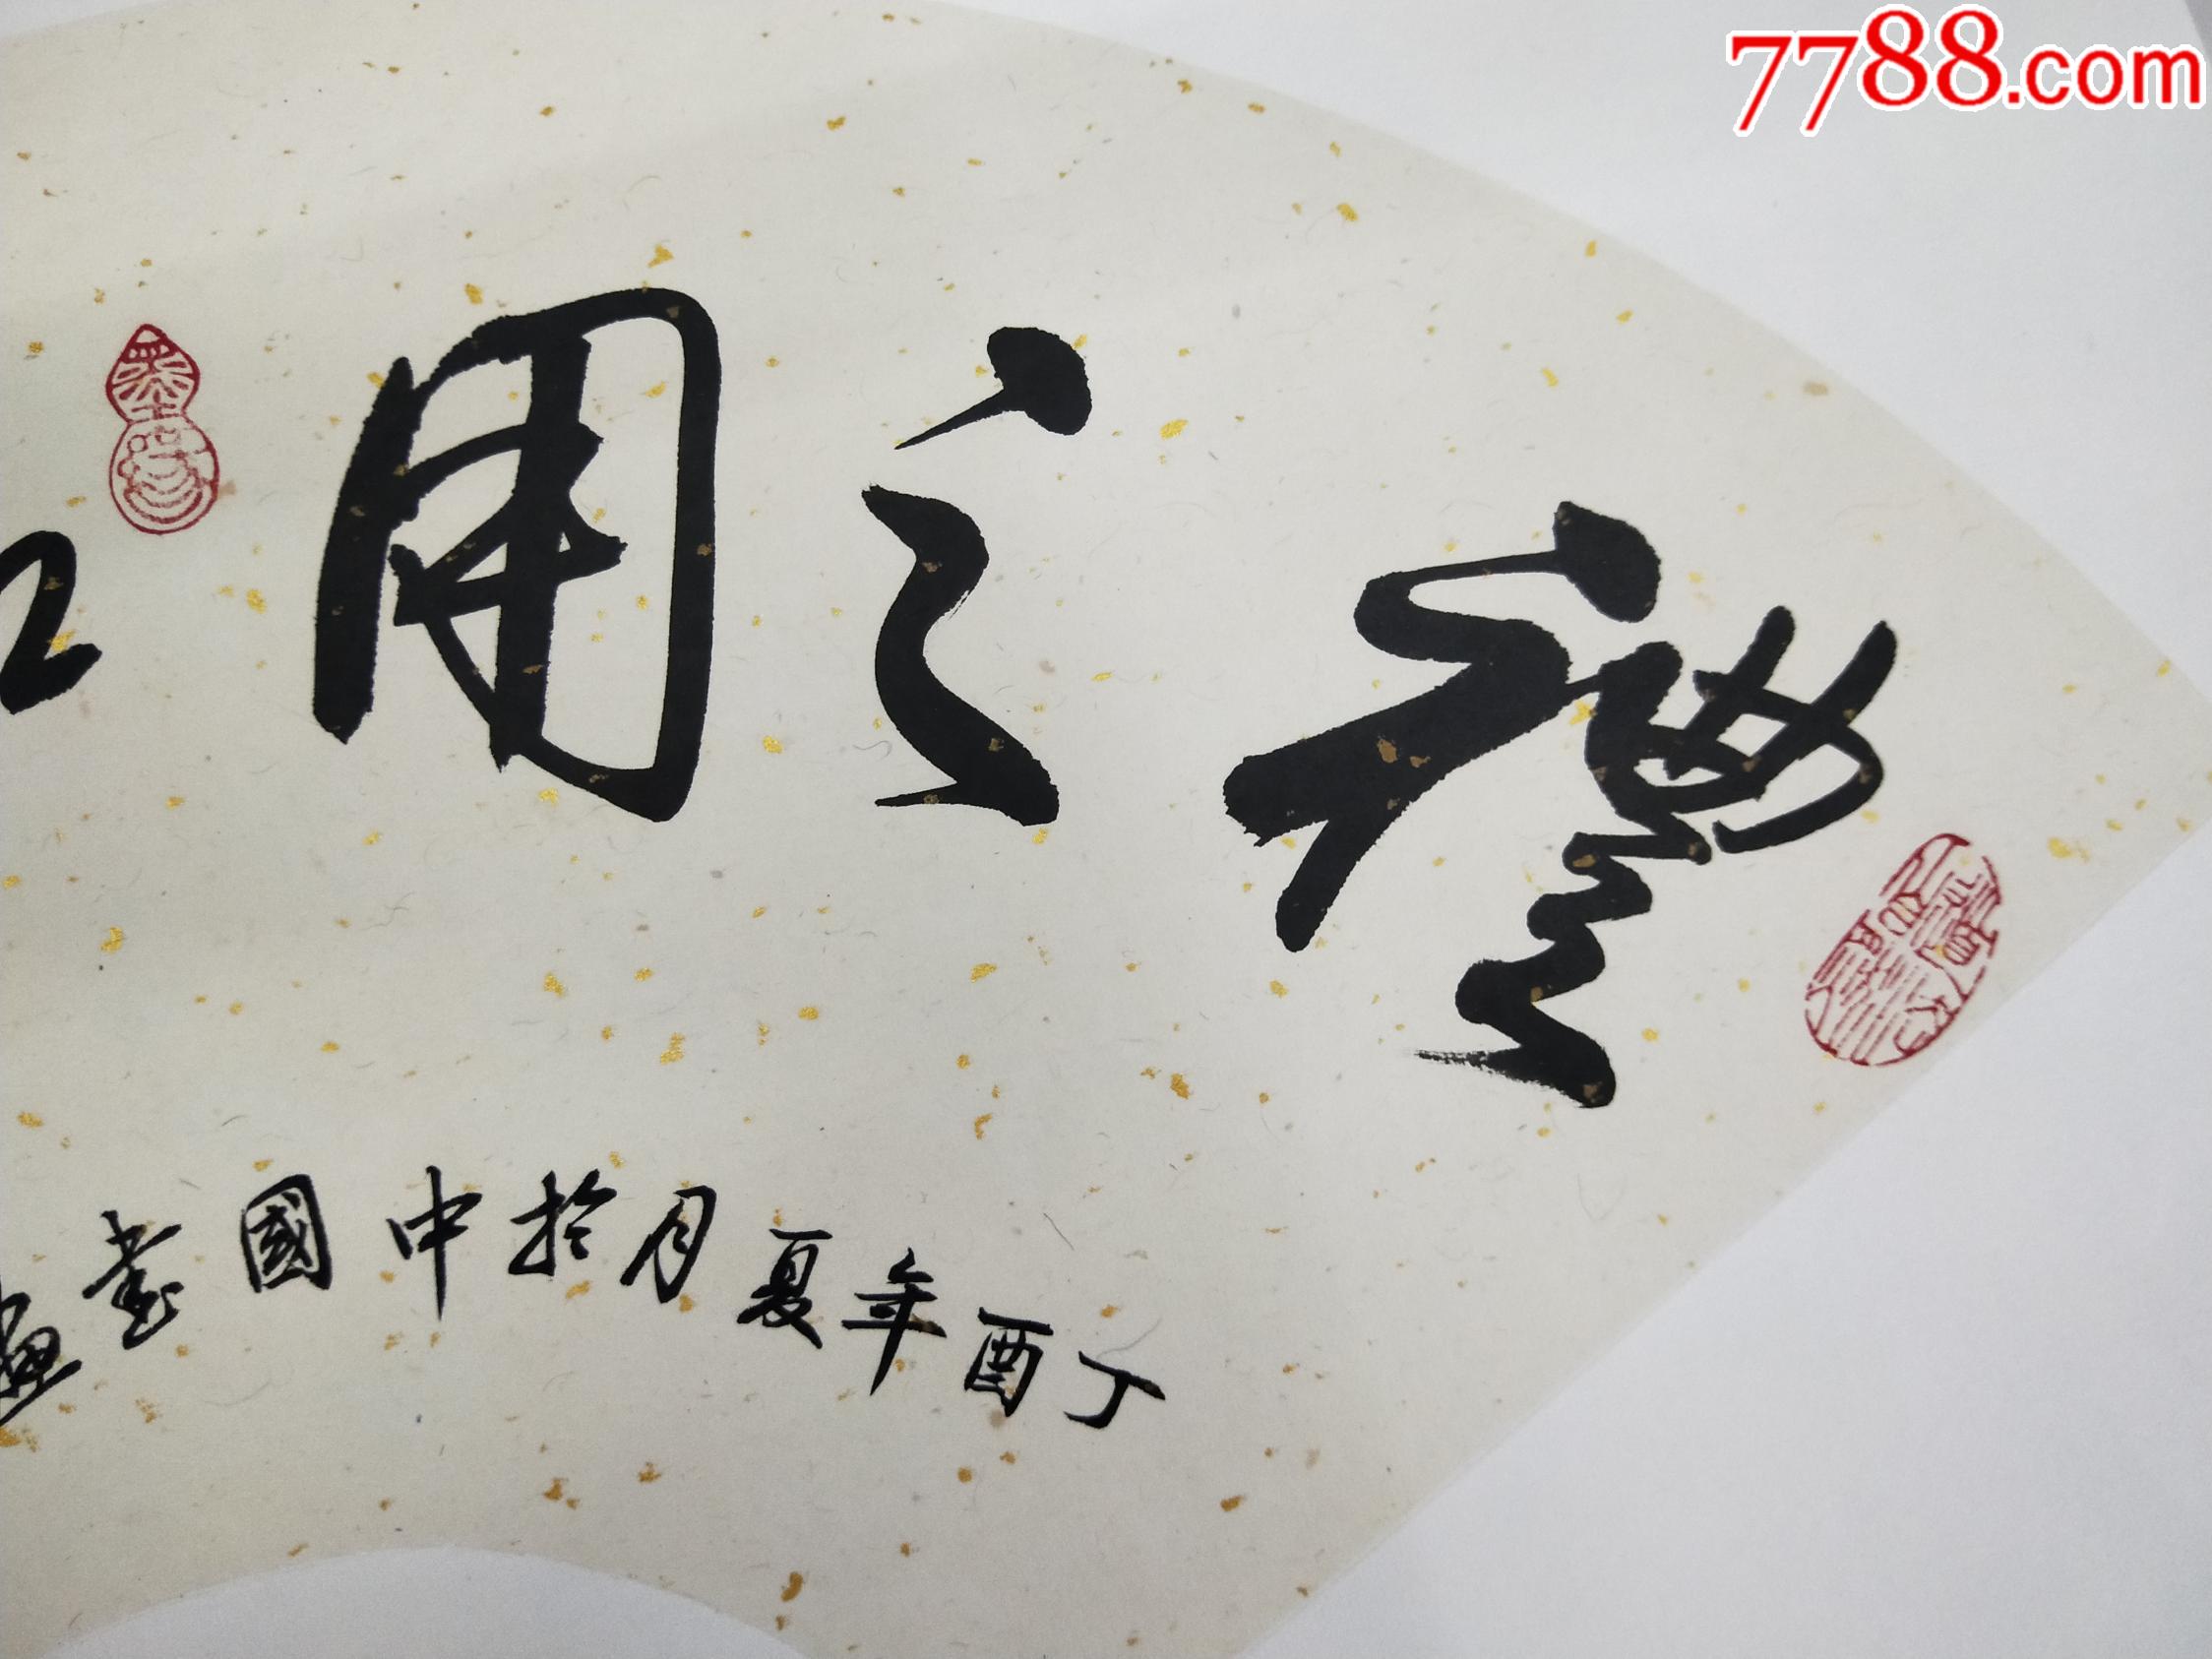 7788.com
禮之用
丁酉年夏月於中國書畫